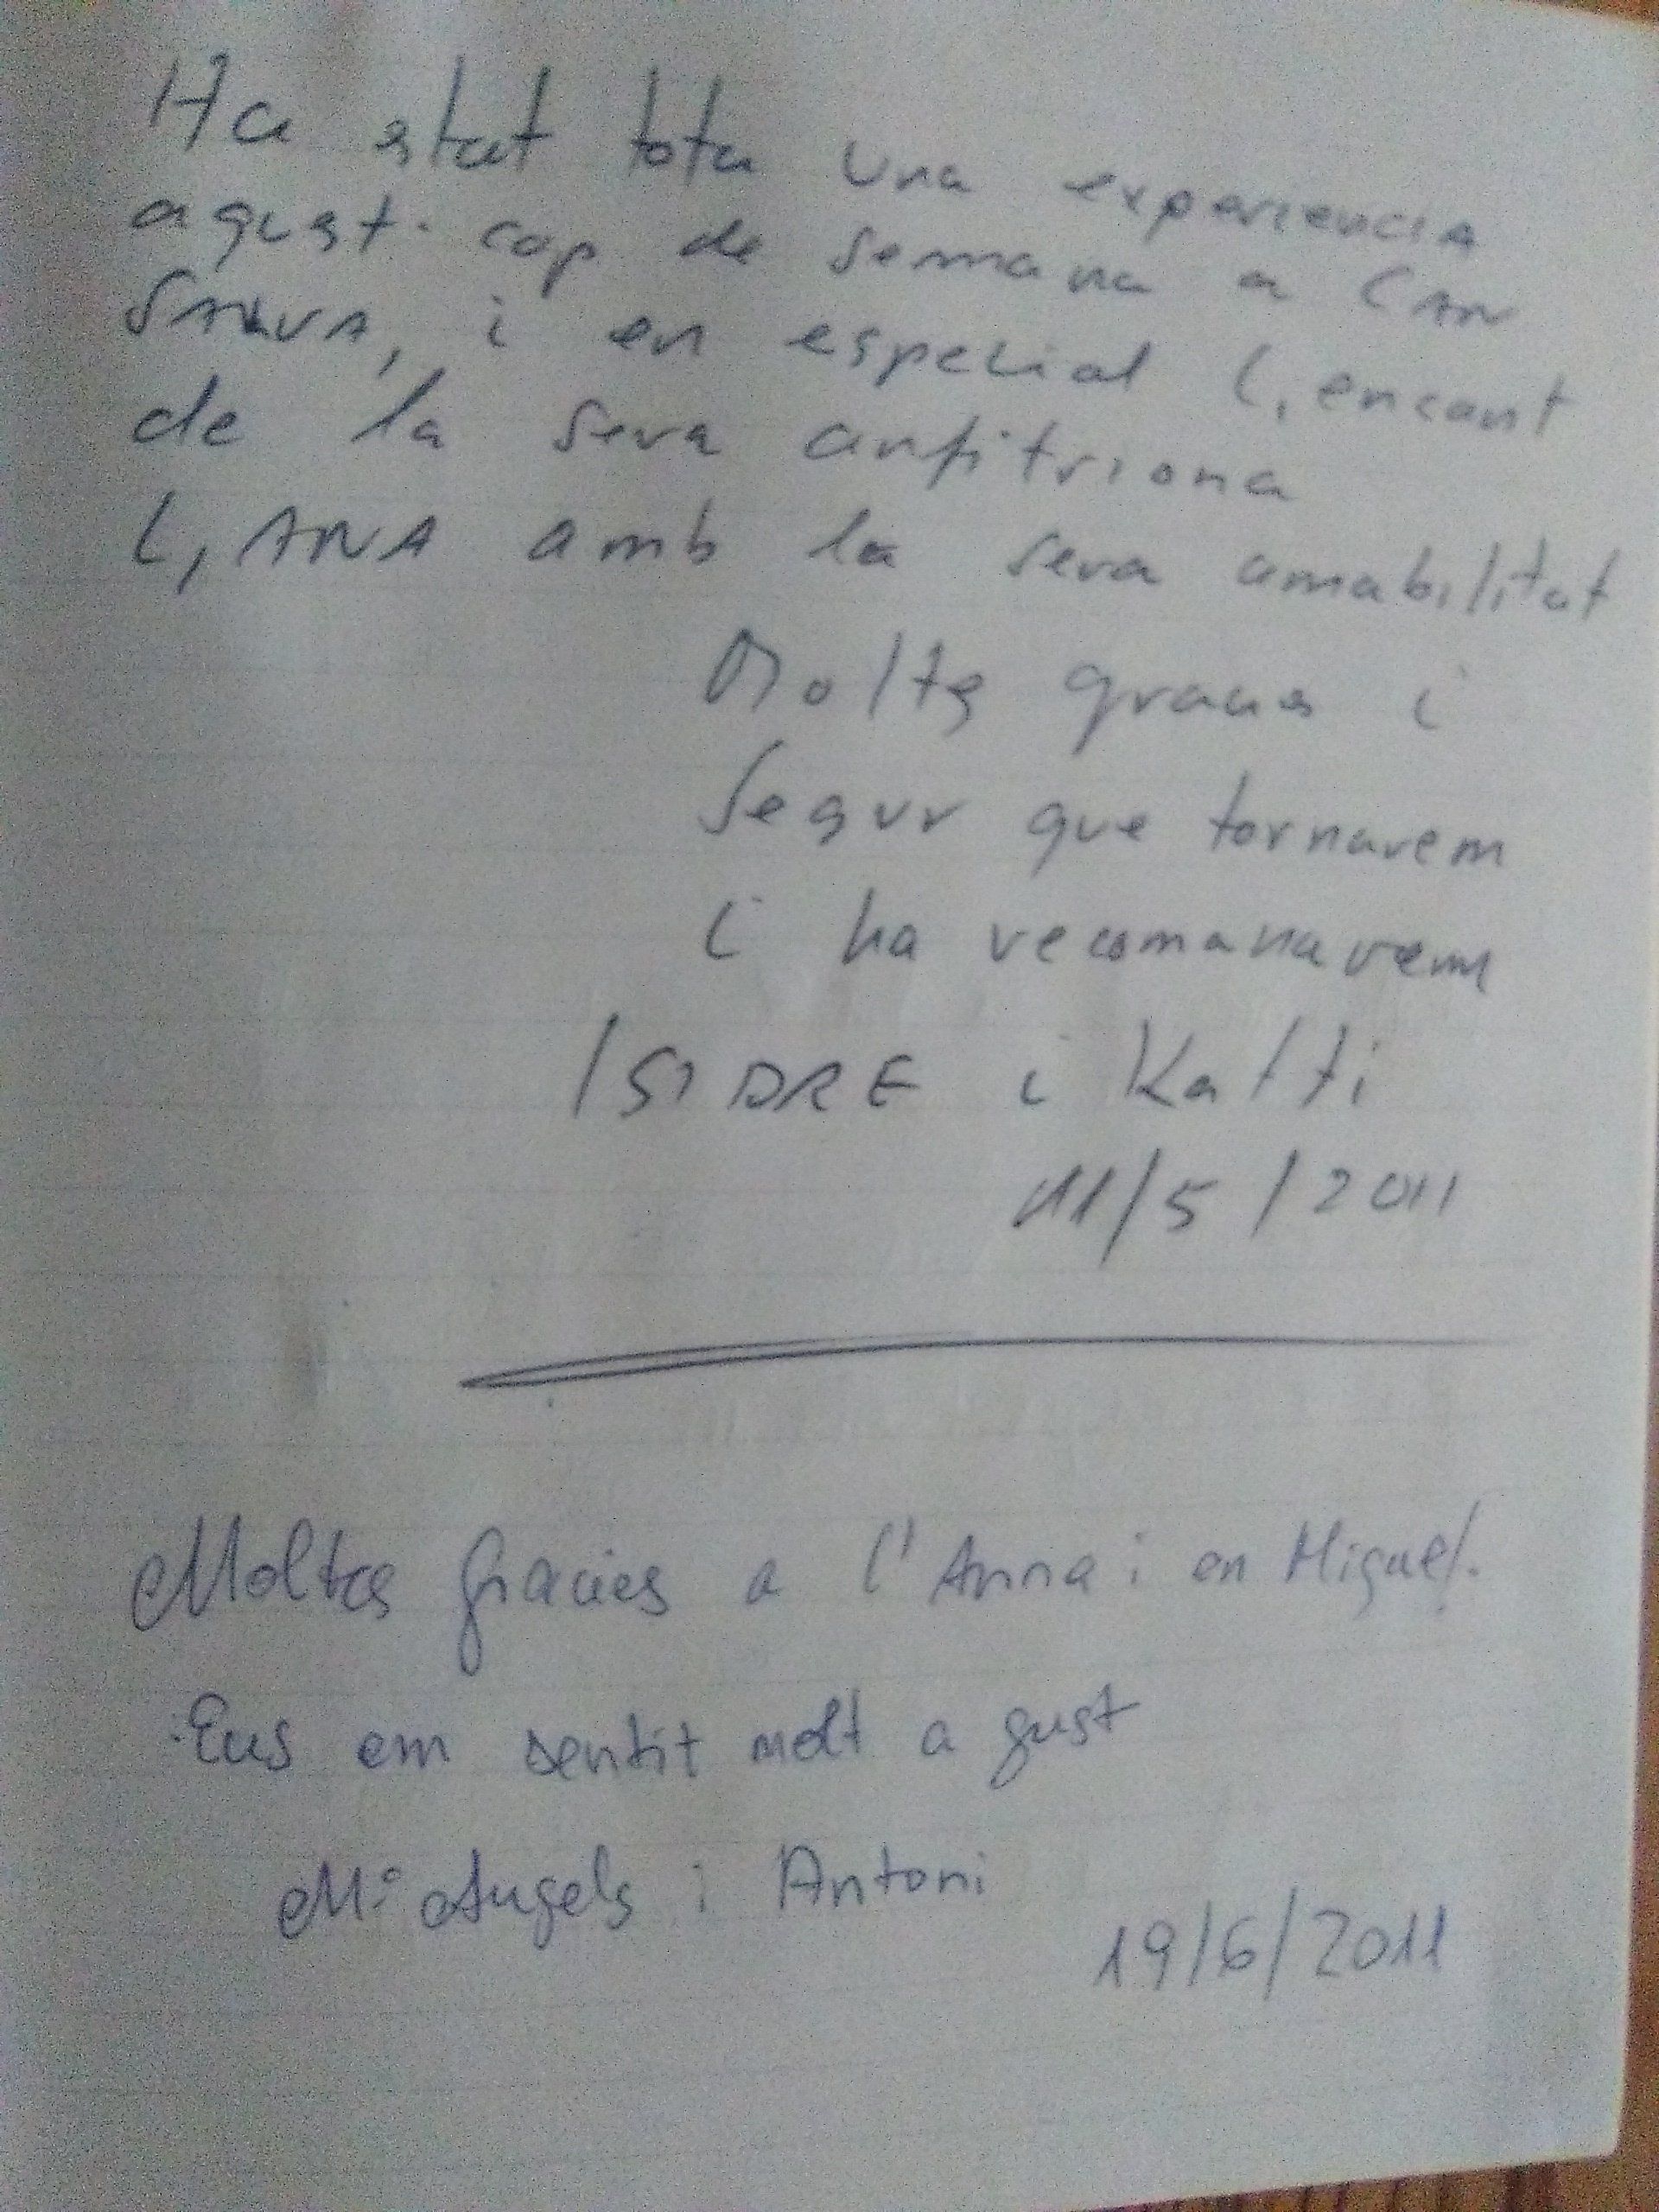 Ha estat tota una experiencia
aqust. cap de semana a CAN
SALVA, i en especial l, encant
de la seva anfitriona
L, ANA amb la seva amabilitat
Moltes gracies i
Segur que tornarem
i ha recomanarem
ISIDRE i Katti
11/5/2011
Moltes gracies a l'Anna i en Miquel.
Ens em sentit molt a gust
Mª Angels i Antoni
19/6/2011